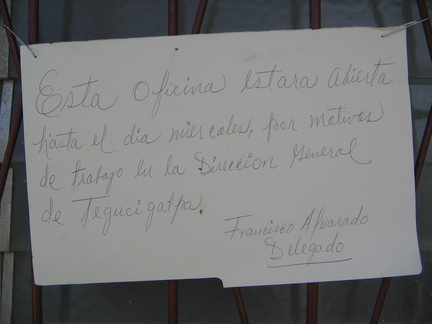 Esta oficina estara abierta
hasta el dia miercoles, por motivos
de trabajo en la Direccion General
de Tegucigalpa.
Francisco Alvarado
Delegado